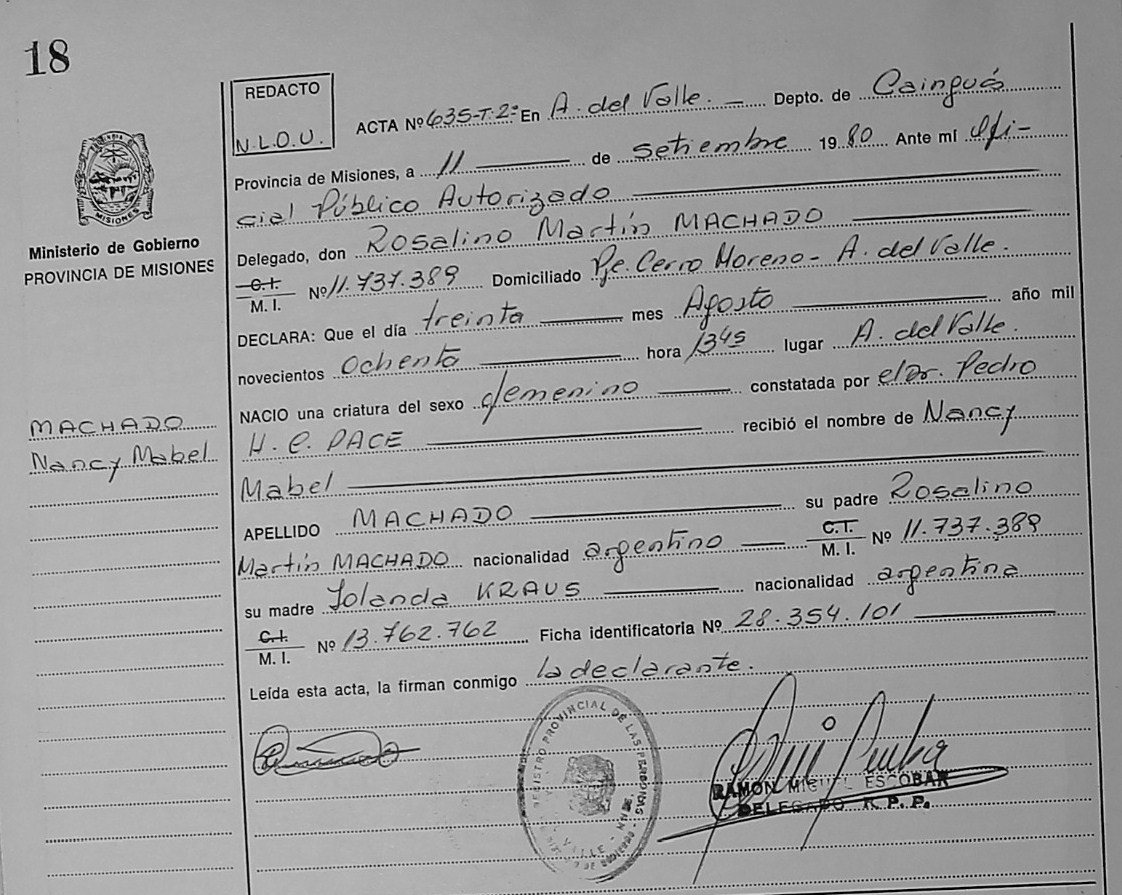 18
REDACTO
N.L.O.U.
MISIONES
Ministerio de Gobierno
PROVINCIA DE MISIONES
MACHADO
Nancy Mabel
ACTA Nº 635-T-2- En A. del Valle. Depto. de Cainguás
Provincia de Misiones, a 11 de setiembre 19 80 Ante mí Ofi-
cial Público Autorizado
Delegado, don Rosalino Martín MACHADO
C.I. M. I. Nº 11.737.389 Domiciliado Pje. Cerro Moreno - A. del Valle.
DECLARA: Que el día treinta mes Agosto año mil
novecientos Ochenta hora 1345 lugar A. del Valle.
NACIO una criatura del sexo femenino constatada por el Dr. Pedro
H. C. PACE recibió el nombre de Nancy
Mabel
APELLIDO MACHADO su padre Rosalino
Martín MACHADO nacionalidad argentino C.I. M. I. Nº 11.737.389
su madre Iolanda KRAUS nacionalidad argentina
C.I. M. I. Nº 13.762.762 Ficha identificatoria Nº 28.354.101
Leída esta acta, la firman conmigo la declarante.
REGISTRO PROVINCIAL DE LAS PERSONAS
RAMON MIGUEL ESCOBAR
DELEGADO R. P. P.